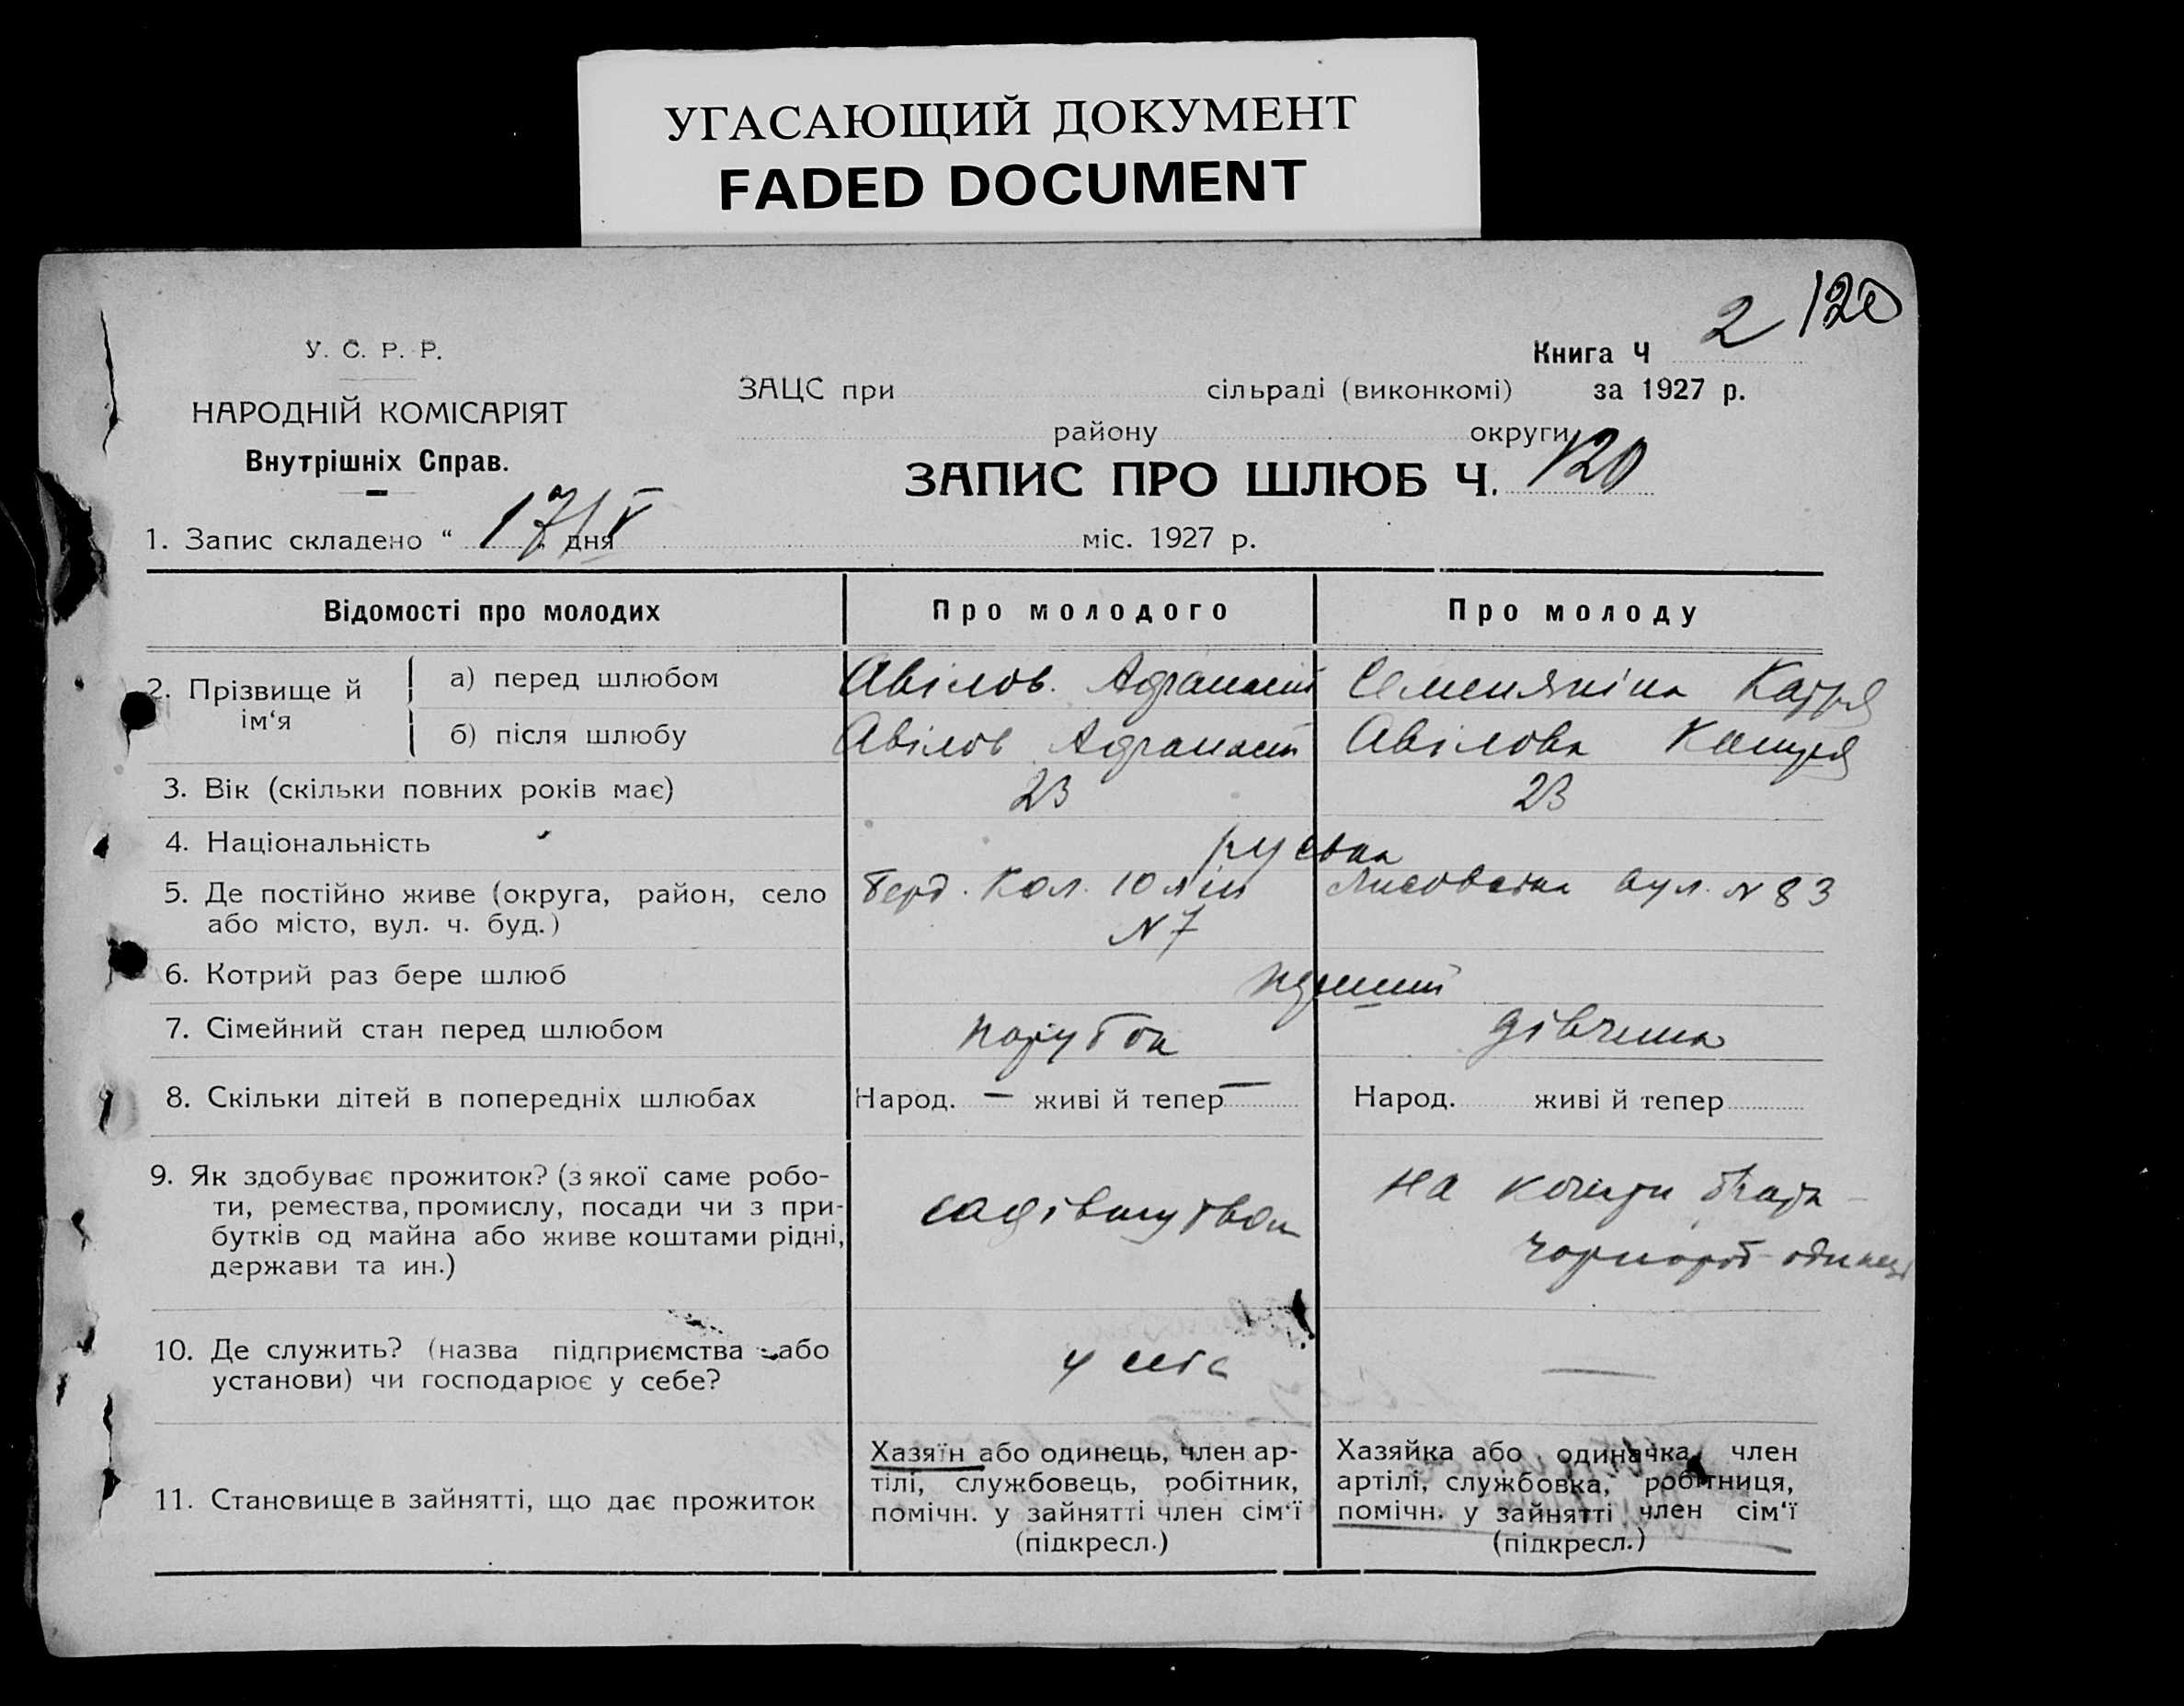 УГАСАЮЩИЙ ДОКУМЕНТ
FADED DOCUMENT
2 120
У. С. Р. Р.
НАРОДНІЙ КОМІСАРІЯТ
Внутрішніх Справ.
Книга Ч
ЗАЦС при сільраді (виконкомі) за 1927 р.
району округи
ЗАПИС ПРО ШЛЮБ Ч. 120
1. Запис складено “ 17/V дня міс. 1927 р.
Відомості про молодих Про молодого Про молоду
2. Прізвище й ім‘я
а) перед шлюбом Авілов Семенякіна Катря
б) після шлюбу Авілов Авілова Катря
3. Вік (скільки повних років має) 23 23
4. Національність руська
5. Де постійно живе (округа, район, село Берд. Кол. 10 лін Лисовська вул. N 83
або місто, вул. ч. буд.) N 7
6. Котрий раз бере шлюб перший
7. Сімейний стан перед шлюбом парубок дівчина
8. Скільки дітей в попередніх шлюбах Народ. — живі й тепер — Народ. живі й тепер
9. Як здобуває прожиток? (з якої саме робо-
ти, ремества, промислу, посади чи з при-
бутків од майна або живе коштами рідні,
держави та ин.)
садівництвом
на кошти брата -
чорнороб - одинець
10. Де служить? (назва підприємства або
установи) чи господарює у себе?
у себе —
11. Становище в зайнятті, що дає прожиток
Хазяїн або одинець, член ар-
тілі, службовець, робітник,
помічн. у зайнятті член сім‘ї
(підкресл.)
Хазяйка або одиначка, член
артілі, службовка, робітниця,
помічн. у зайнятті член сім‘ї
(підкресл.)